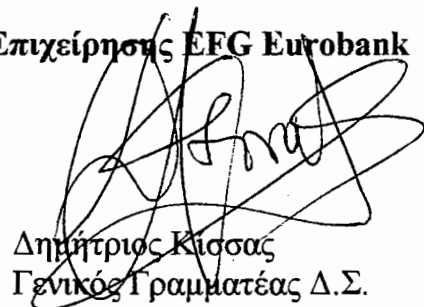 Επιχείρησης EFG Eurobank
Δημήτριος Κίσσας
Γενικός Γραμματέας Δ.Σ.